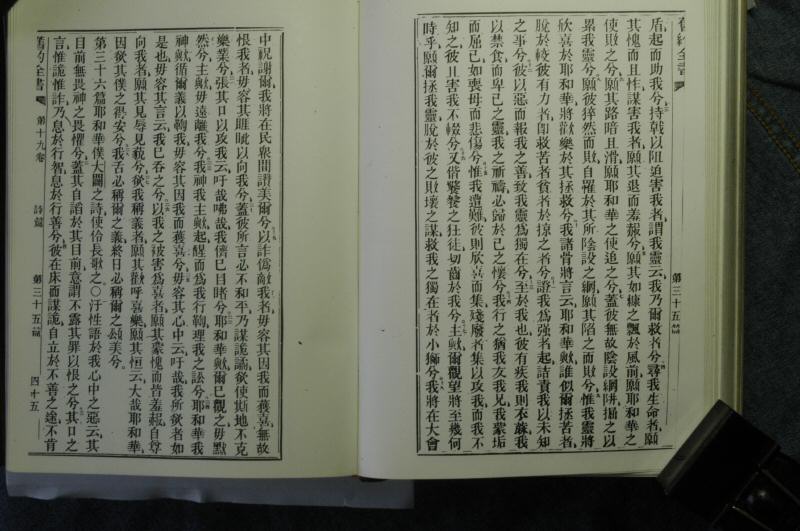 舊約全書
第三十五篇
盾起而助我兮持戟以阻迫害我者謂我靈云我乃爾救者兮尋我生命者願
其愧而且怍謀害我者願其退而羞赧兮願其如糠之飄於風前願耶和華之
使敗之兮願其路暗且滑願耶和華之使追之兮蓋彼無故陰設網阱掘之以
累我靈兮願彼猝然而敗自罹於其所陰設之網願其陷之而敗兮惟我靈將
欣喜於耶和華將歡樂於其拯救兮我諸骨將言云耶和華歟誰似爾拯苦者
脫於較彼有力者即救苦者貧者於掠之者兮證我爲強者起詰責我以未知
之事兮彼以惡而報我之善致我靈爲獨在兮至於我也彼有疾我則衣蔴我
以禁食而卑己之靈我之祈禱必歸於己之懷兮我行之猶我友我兄我蒙垢
而屈已如喪母而悲傷兮惟我遭難彼則欣喜而集殘廢者集以攻我而我不
知之彼且害我不輟兮又偕饕餮之狂徒切齒於我兮主歟爾觀望將至幾何
時乎願爾拯我靈脫於彼之敗壞之謀救我之獨在者於小獅兮我將在大會
中祝謝爾我將在民衆間讃美爾兮以詐僞敵我者毋容其因我而獲喜無故
恨我者毋容其睚眦以向我兮蓋彼所言必不和平乃謀詭譎欲使斯地不克
樂業兮張其口以攻我云吁哉咈哉我儕已目睹兮耶和華歟爾已觀之毋默
然兮主歟毋遠離我兮我神我主歟起醒而爲我行鞫理我之訟兮耶和華我
神歟循爾義以鞫我毋容其因我而獲喜兮毋容其心中云吁哉我所欲者如
是也毋容其言云我已吞之兮以我之被害爲喜者願其蒙愧而皆羞赧自尊
向我者願其見辱見貌兮欲我稱義者願其歡呼喜樂願其恒云大哉耶和華
因欲其僕之得安兮我舌必稱爾之義終日必稱爾之頌美兮
第三十六篇耶和華僕大闢之詩使伶長歌之〇汙性語於我心中之惡云其
目前無畏神之畏懼兮蓋其自諂於其目前意謂不露其罪以恨之兮其口之
言惟詭惟詐乃息於行智息於行善兮彼在床而謀詭自立於不善之途不肯
舊約全書
第十九卷
詩篇
第三十五篇
四十五